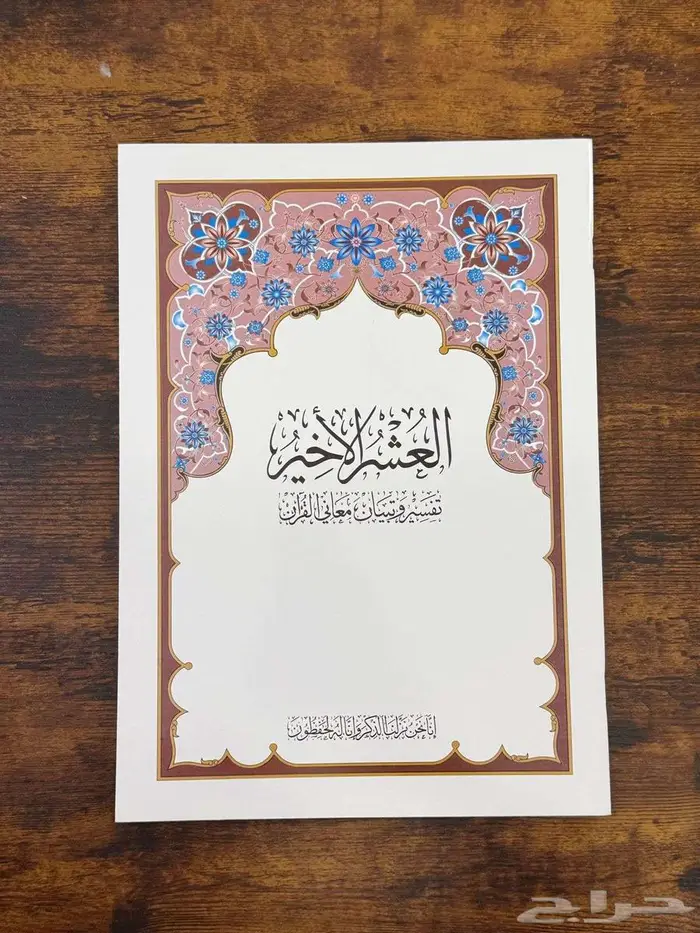 العُشْرُ الأَخِيرُ
تَفسِير وَتبيَان مَعَاني القُرآن
إِنَّا نَحنُ نَزَّلنَا الذِّكرَ وَإِنَّا لَهُ لَحَفِظُونَ
حراج